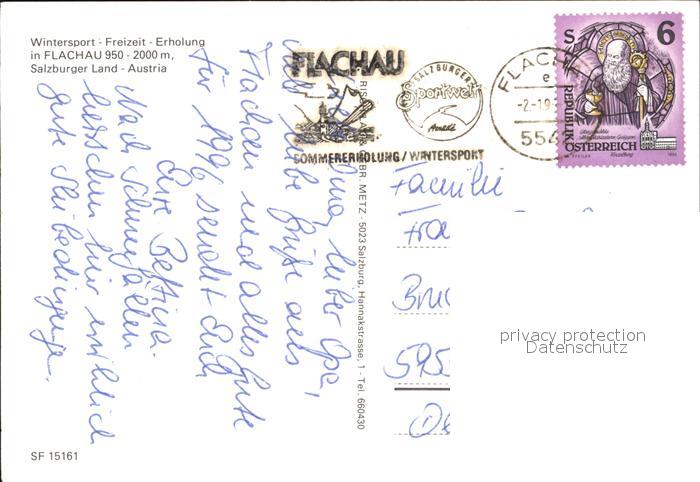 Wintersport - Freizeit - Erholung
in FLACHAU 950 - 2000 m,
Salzburger Land - Austria
Liebe Oma, lieber Opa,
viele liebe Grüße aus
Flachau und alles Gute
für 1996 sendet Euch
Eure Bettina.
Nach Schneefällen
herrschen hier endlich
gute Skibedingungen.
SF 15161
METZ - 5023 Salzburg, Hannakstrasse. 1 - Tel. 660430
FLACHAU
SALZBURGER
Sportwelt
Amadé
SOMMERERHOLUNG / WINTERSPORT
FLACH
e
-2.-1.9
554
S 6
REPUBLIK
ÖSTERREICH
Familie
Bru
595
privacy protection
Datenschutz